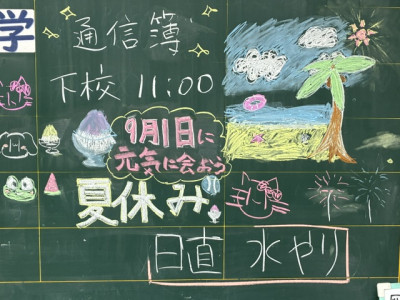 学
通信簿
下校 11:00
9月1日に
元気に会おう
夏休み
日直 水やり